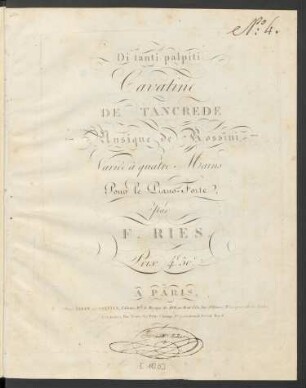 N.º 4.
Di tanti palpiti
Cavatine
DE TANCREDE
Musique de Rossini
Variée à quatre Mains
Pour le Piano-Forte
par
F. RIES
Prix 4f 50c
A PARIS